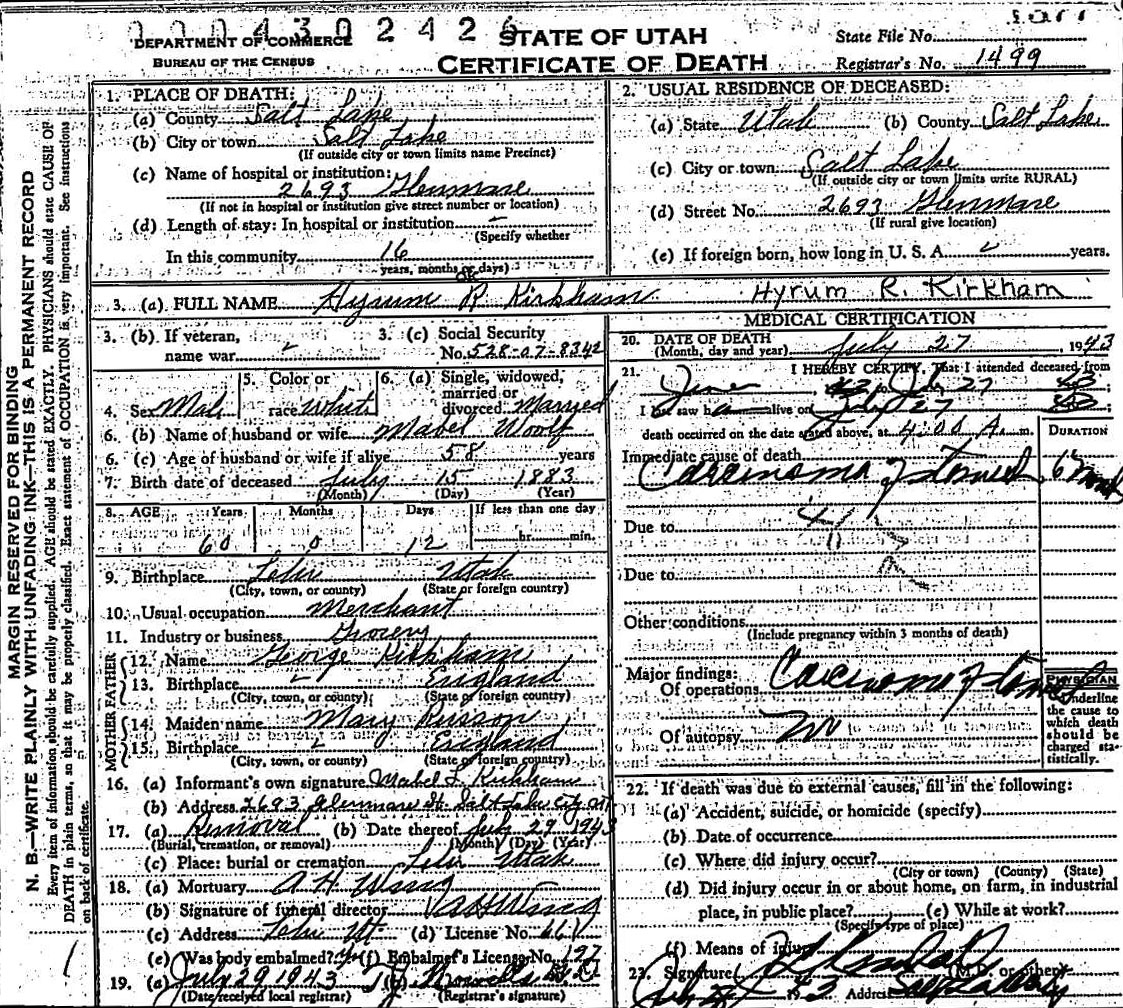 0004302426
DEPARTMENT OF COMMERCE
BUREAU OF THE CENSUS
STATE OF UTAH
CERTIFICATE OF DEATH
State File No.
Registrar's No. 1499
MARGIN RESERVED FOR BINDING
N. B.—WRITE PLAINLY WITH UNFADING INK—THIS IS A PERMANENT RECORD
Every item of information should be carefully supplied. AGE should be stated EXACTLY. PHYSICIANS should state CAUSE OF
DEATH in plain terms, so that it may be properly classified. Exact statement of OCCUPATION is very important. See instructions
on back of certificate.
1. PLACE OF DEATH:
(a) County Salt Lake
(b) City or town Salt Lake
(If outside city or town limits name Precinct)
(c) Name of hospital or institution:
2693 Glenmare
(If not in hospital or institution give street number or location)
(d) Length of stay: In hospital or institution -
(Specify whether
In this community 16
years, months or days)
2. USUAL RESIDENCE OF DECEASED:
(a) State Utah (b) County Salt Lake
(c) City or town Salt Lake
(If outside city or town limits write RURAL)
(d) Street No. 2693 Glenmare
(If rural give location)
(e) If foreign born, how long in U. S. A. years.
3. (a) FULL NAME Hyrum R. Kirkham Hyrum R. Kirkham
3. (b) If veteran,
name war
3. (c) Social Security
No. 528-07-8342
4. Sex Male
5. Color or
race White
6. (a) Single, widowed,
married or
divorced Married
6. (b) Name of husband or wife Mabel Woolf
6. (c) Age of husband or wife if alive 58 years
7. Birth date of deceased July 15 1883
(Month) (Day) (Year)
8. AGE Years Months Days If less than one day
60 0 12 hr. min.
9. Birthplace Lehi Utah
(City, town, or county) (State or foreign country)
10. Usual occupation Merchant
11. Industry or business Grocery
FATHER
12. Name George Kirkham
13. Birthplace - England
(City, town, or county) (State or foreign country)
MOTHER
14. Maiden name Mary Russon
15. Birthplace - England
(City, town, or county) (State or foreign country)
16. (a) Informant's own signature Mabel L. Kirkham
(b) Address 2693 Glenmare St. Salt Lake City
17. (a) Removal (b) Date thereof July 29 1943
(Burial, cremation, or removal) (Month) (Day) (Year)
(c) Place: burial or cremation Lehi Utah
18. (a) Mortuary A H Wing
(b) Signature of funeral director A H Wing
(c) Address Lehi Ut. (d) License No.
(e) Was body embalmed? (f) Embalmer's License No. 197
19. (a) July 29 1943 (b)
(Date received local registrar) (Registrar's signature)
MEDICAL CERTIFICATION
20. DATE OF DEATH
(Month, day and year) July 27, 1943
21. I HEREBY CERTIFY, That I attended deceased from
June 43 July 27 43;
I last saw h alive on July 27 43;
death occurred on the date stated above, at 4:00 A. m.
DURATION
Immediate cause of death
Carcinoma of stomach 6
Due to
Due to
Other conditions
(Include pregnancy within 3 months of death)
Major findings:
Of operations Carcinoma of stomach
Of autopsy no
PHYSICIAN
Underline
the cause to
which death
should be
charged sta-
tistically.
22. If death was due to external causes, fill in the following:
(a) Accident, suicide, or homicide (specify)
(b) Date of occurrence
(c) Where did injury occur?
(City or town) (County) (State)
(d) Did injury occur in or about home, on farm, in industrial
place, in public place? (e) While at work?
(Specify type of place)
(f) Means of injury
23. Signature (M.D. or other)
July 43 Address Salt Lake City